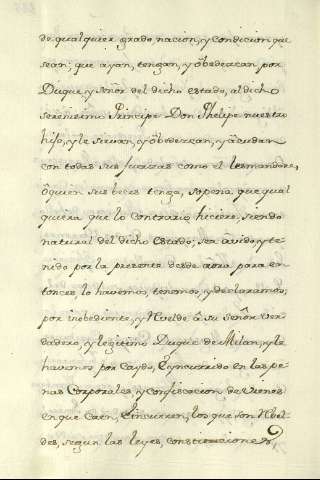 de qualquier grado nacion, y condicion que
sean: que ayan, tengan, y obbedezcan por
Duque, y Señor del dicho estado, al dicho
serenissimo Principe Don Phelipe nuestro
hijo, y le siruan, y obbedezcan, y acudan
con todas sus fuerzas como el les mandare,
ô quien sus veces tenga, so pena, que qual
quiera que lo contrario hiciere, siendo
natural del dicho Estado; sea auido, y te-
nido por la presente desde aora para en-
tonces, lo hauemos, tenemos, y declaramos,
por inobediente, y Rebelde â su señor ver-
dadero, y legitimo Duque de Milan, y le
hauemos por caydo, E yncurrido en las pe-
nas Corporales, y confiscacion de vienes
en que caen, E incurren, los que son Rebel-
des, segun las leyes, constituciones,